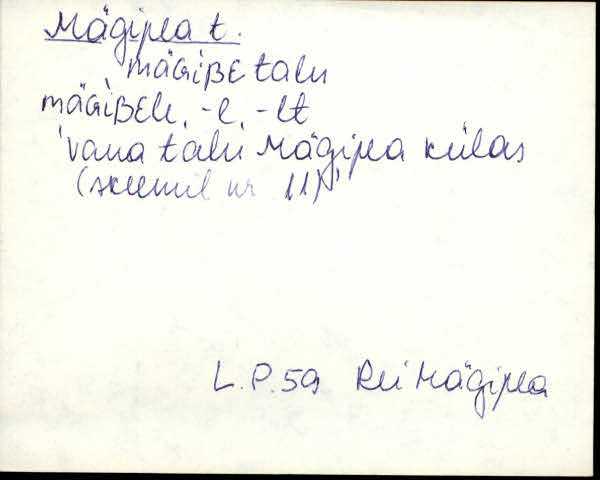 Mägipea t.
mäɢ̀iʙᴇ talu
mäɢ̀iʙᴇle, -l, -lt
'vana talu Mägipea külas
(skeemil nr 11)'
L.P.59 Rei Mägipea